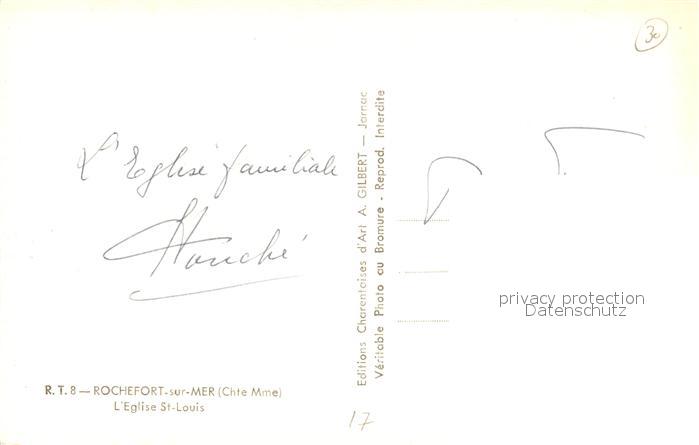 30
L'Eglise familiale
R. T. 8 — ROCHEFORT-sur-MER (Chte Mme)
L'Eglise St-Louis
Editions Charentaises d'Art A. GILBERT — Jarnac
Véritable Photo au Bromure - Reprod. Interdite
privacy protection
Datenschutz
17